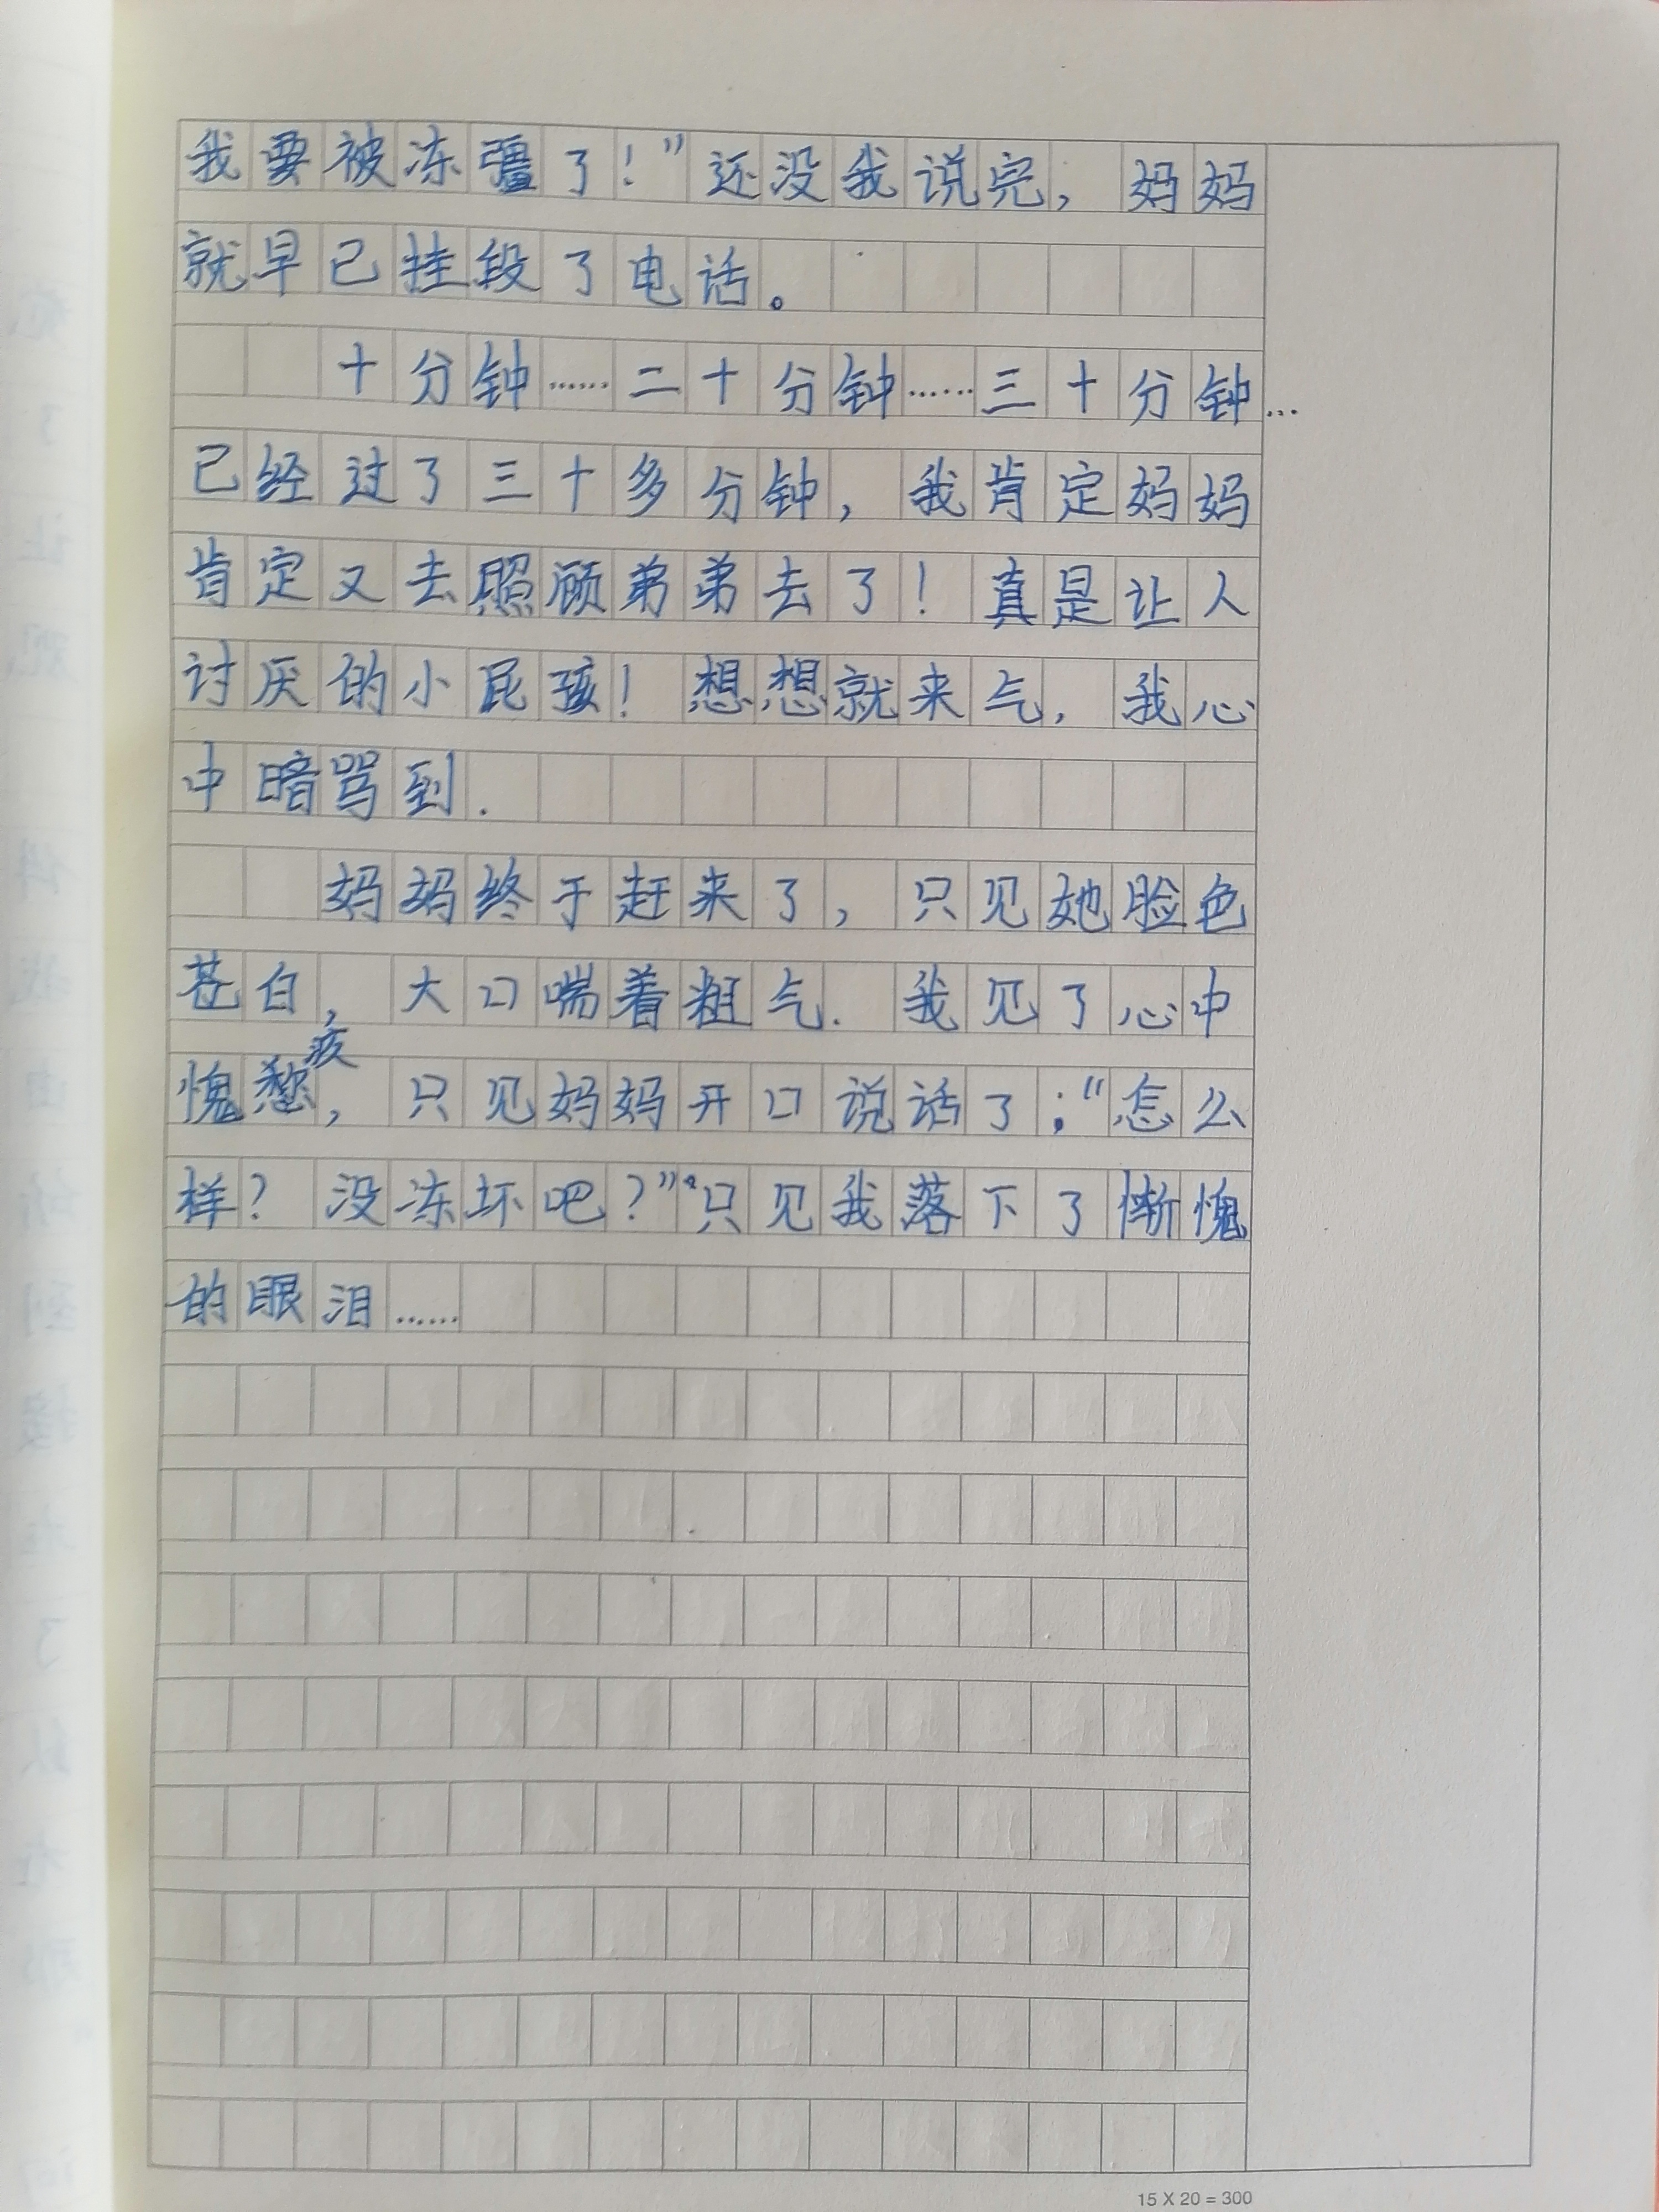 我要被冻疆了！”还没我说完，妈妈
就早已挂段了电话。
十分钟……二十分钟……三十分钟…
已经过了三十多分钟，我肯定妈妈
肯定又去照顾弟弟去了！真是让人
讨厌的小屁孩！想想就来气，我心
中暗骂到.
妈妈终于赶来了，只见她脸色
苍白，大口喘着粗气.我见了心中
愧愁疚，只见妈妈开口说话了；“怎么
样？没冻坏吧？”只见我落下了惭愧
的眼泪……
15 X 20 = 300